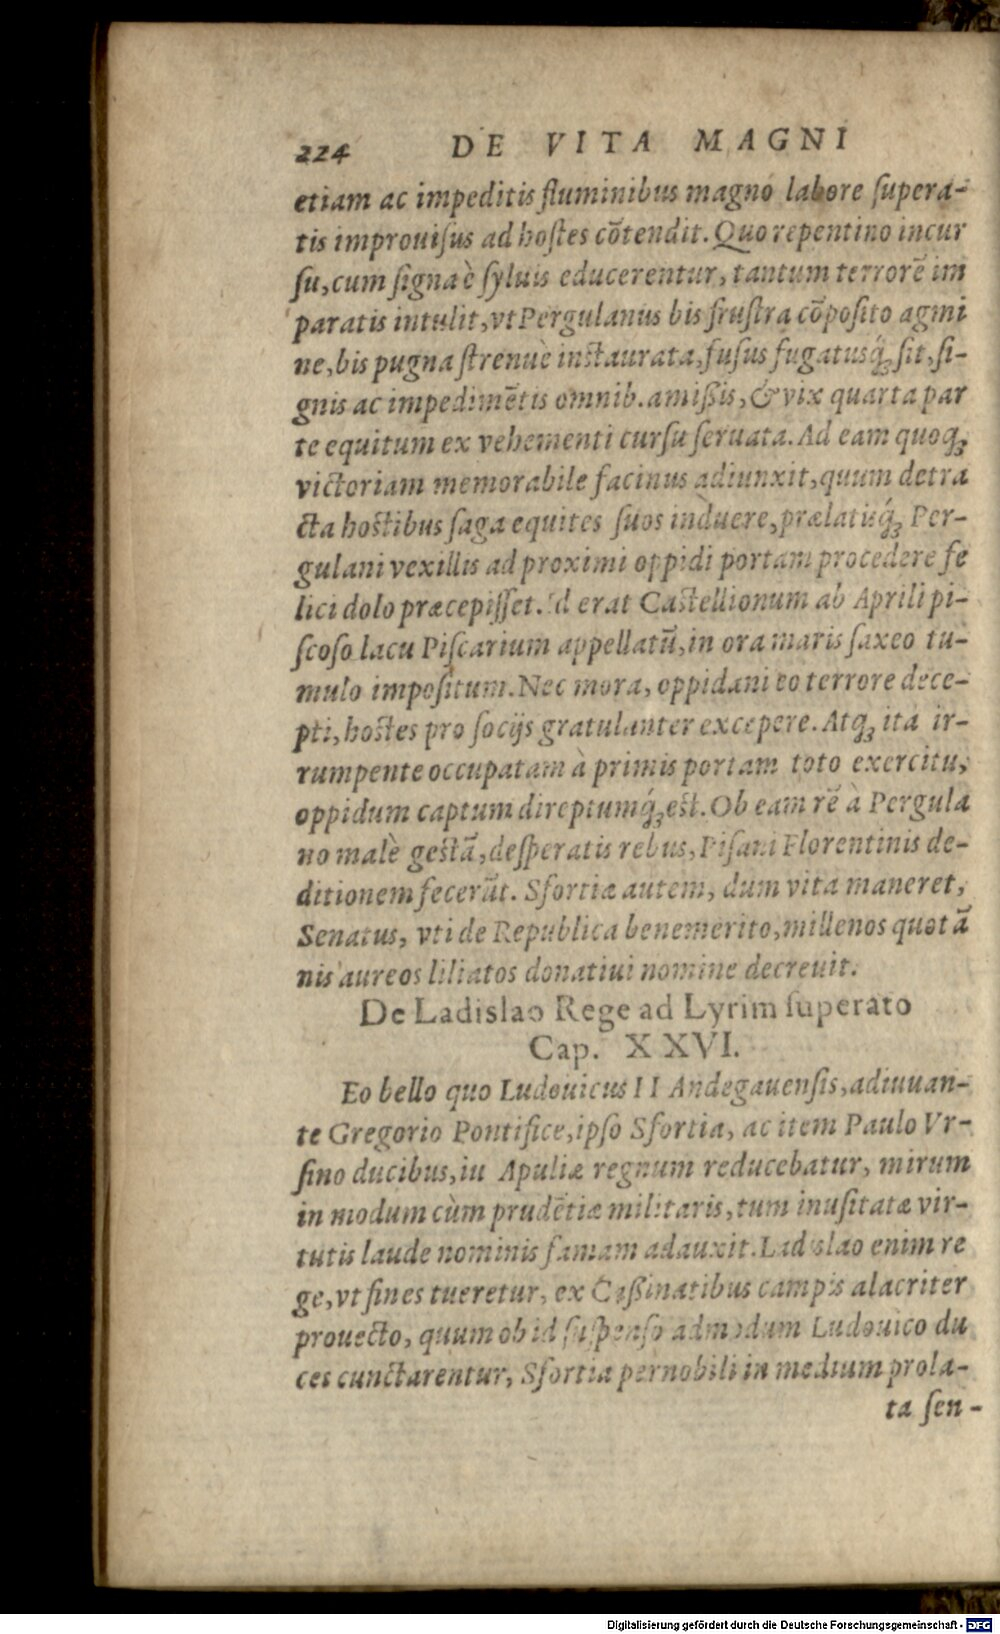 224 DE VITA MAGNI
etiam ac impeditis fluminibus magno labore ſupera-
tis improuiſus ad hoſtes cõtendit. Quo repentino incur
ſu, cum ſigna è ſyluis educerentur, tantum terrorẽ im
paratis intulit, vt Pergulanus bis fruſtra cõpoſito agmi
ne, bis pugna ſtrenuè inſtaurata, fuſus fugatusq́ꝫ ſit, ſi-
gnis ac impedimẽtis omnib. amißis, & vix quarta par
te equitum ex vehementi curſu ſeruata. Ad eam quoqꝫ
victoriam memorabile facinus adiunxit, quum detra
cta hoſtibus ſaga equites ſuos induere, prælatisq́ꝫ Per-
gulani vexillis ad proximi oppidi portam procedere fe
lici dolo præcepiſſet. Id erat Caſtellionum ab Aprili pi-
ſcoſo lacu Piſcarium appellatũ, in ora maris ſaxeo tu-
mulo impoſitum. Nec mora, oppidani eo terrore dece-
pti, hoſtes pro ſocijs gratulanter excepere. Atqꝫ ita ir-
rumpente occupatam à primis portam toto exercitu,
oppidum captum direptumq́ꝫ eſt. Ob eam rẽ à Pergula
no malè geſtã, deſperatis rebus, Piſani Florentinis de-
ditionem fecerũt. Sfortiæ autem, dum vita maneret,
Senatus, vti de Republica benemerito, millenos quotã
nis aureos liliatos donatiui nomine decreuit.
De Ladislao Rege ad Lyrim ſuperato
Cap. XXVI.
Eo bello quo Ludouicus II Andegauenſis, adiuuan-
te Gregorio Pontifice, ipſo Sfortia, ac item Paulo Vr-
ſino ducibus, iu Apuliæ regnum reducebatur, mirum
in modum cùm prudẽtiæ militaris, tum inuſitatæ vir-
tutis laude nominis famam adauxit. Ladislao enim re
ge, vt fines tueretur, ex Caßinatibus campis alacriter
prouecto, quum ob id ſuſpenſo admodum Ludouico du
ces cunctarentur, Sfortia pernobili in medium prola-
ta ſen-
Digitalisierung gefördert durch die Deutsche Forschungsgemeinschaft - DFG